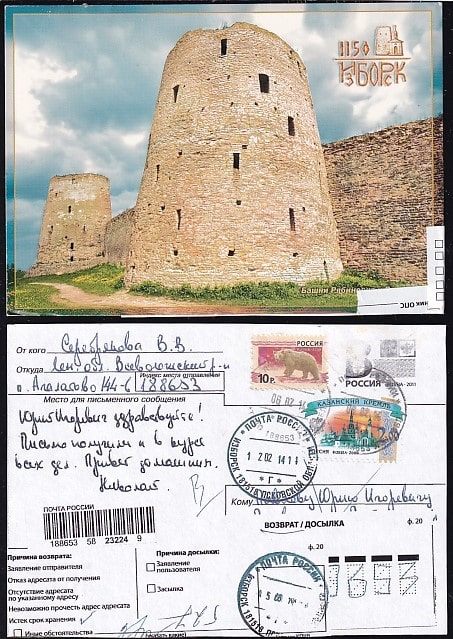 1150
ИЗБОРСК
Башни
ник ОПС
От кого Серебрякова В.В.
Откуда Лен. обл. Всеволожский р-н
Индекс места отправления
п. Агалатово 144-6 188653
Место для письменного сообщения
Юрий Игоревич здравствуйте!
Письмо получили и в курсе
всех дел. Привет домашним.
Николай
РОССИЯ
10 р.
РОССИЯ
КАЗАНСКИЙ КРЕМЛЬ
ПОЧТА РОССИИ
12 02 14 11
ИЗБОРСК 181518 ПСКОВСКОЙ ОБЛ.
Г
Кому Юрию Игоревичу
ВОЗВРАТ / ДОСЫЛКА
ф. 20
ф. 20
ПОЧТА РОССИИ
188653 58 23224 9
Причина возврата:
Заявление отправителя
Отказ адресата от получения
Отсутствие адресата
по указанному адресу
Невозможно прочесть адрес адресата
Истек срок хранения
Иные обстоятельства
Причина досылки:
Заявление
пользователя
Засылка
ПОЧТА РОССИИ